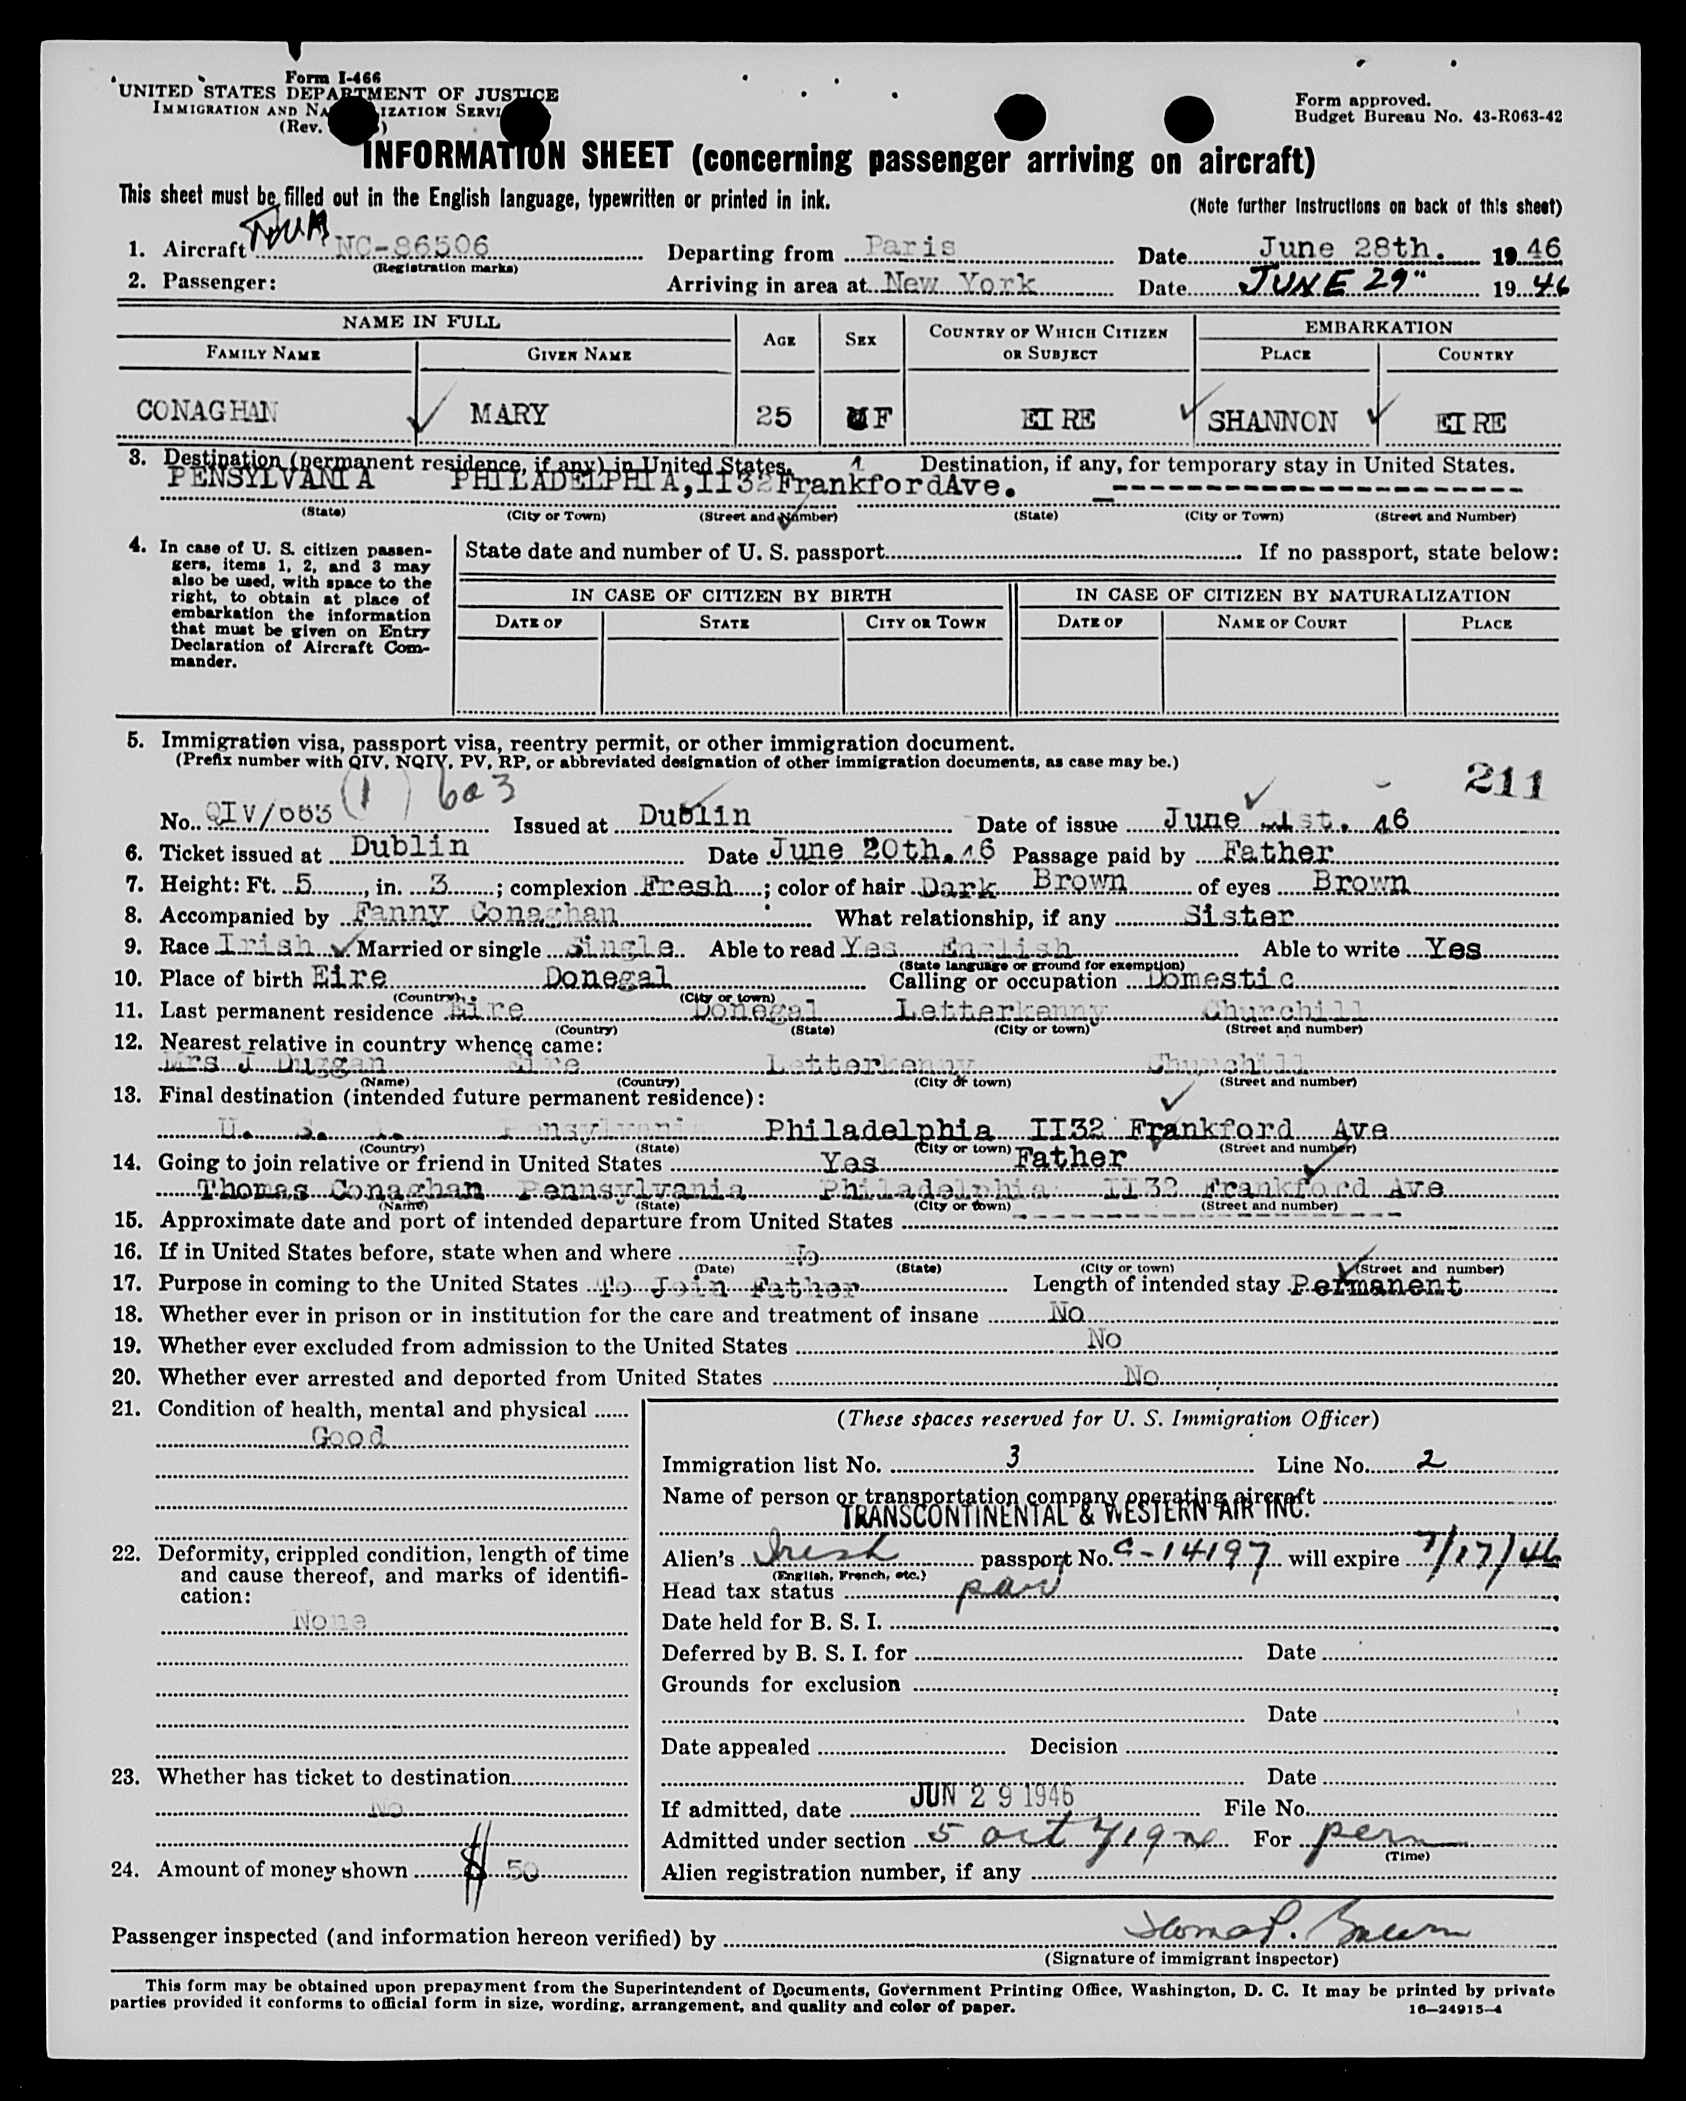 Form I-466
UNITED STATES DEPARTMENT OF JUSTICE
IMMIGRATION AND NA IZATION SERVI
(Rev. )
Form approved.
Budget Bureau No. 43-R063-42
INFORMATION SHEET (concerning passenger arriving on aircraft)
This sheet must be filled out in the English language, typewritten or printed in ink.
(Note further instructions on back of this sheet)
1. Aircraft NC-86506 Departing from Paris Date June 28th. 1946
(Registration marks)
2. Passenger: Arriving in area at New York Date JUNE 29" 1946
NAME IN FULL AGE SEX COUNTRY OF WHICH CITIZEN OR SUBJECT EMBARKATION
FAMILY NAME GIVEN NAME PLACE COUNTRY
CONAGHAN MARY 25 F EIRE SHANNON EIRE
3. Destination (permanent residence, if any) in United States. Destination, if any, for temporary stay in United States.
PENSYLVANIA PHILADELPHIA, II32 FrankfordAve. -----------------------
(State) (City or Town) (Street and Number) (State) (City or Town) (Street and Number)
4. In case of U. S. citizen passen-
gers, items 1, 2, and 3 may
also be used, with space to the
right, to obtain at place of
embarkation the information
that must be given on Entry
Declaration of Aircraft Com-
mander.
State date and number of U. S. passport If no passport, state below:
IN CASE OF CITIZEN BY BIRTH IN CASE OF CITIZEN BY NATURALIZATION
DATE OF STATE CITY OR TOWN DATE OF NAME OF COURT PLACE
5. Immigration visa, passport visa, reentry permit, or other immigration document.
(Prefix number with QIV, NQIV, PV, RP, or abbreviated designation of other immigration documents, as case may be.)
211
(1) 603
No. QIV/ Issued at Dublin Date of issue June 46
6. Ticket issued at Dublin Date June 20th. 46 Passage paid by Father
7. Height: Ft. 5, in. 3; complexion Fresh; color of hair Dark Brown of eyes Brown
8. Accompanied by Fanny Conaghan What relationship, if any Sister
9. Race Irish Married or single Single Able to read Yes English Able to write Yes
(State language or ground for exemption)
10. Place of birth Eire Donegal Calling or occupation Domestic
(Country) (City or town)
11. Last permanent residence Eire Donegal Letterkenny Churchill
(Country) (State) (City or town) (Street and number)
12. Nearest relative in country whence came:
Mrs J Duggan Eire Letterkenny Churchill
(Name) (Country) (City or town) (Street and number)
13. Final destination (intended future permanent residence):
U. S. A. Pensylvania Philadelphia II32 Frankford Ave
(Country) (State) (City or town) (Street and number)
14. Going to join relative or friend in United States Yes Father
Thomas Conaghan Pennsylvania Philadelphia II32 Frankford Ave
(Name) (State) (City or town) (Street and number)
15. Approximate date and port of intended departure from United States - - - - - - - - - - - - - - - - -
16. If in United States before, state when and where No
(Date) (State) (City or town) (Street and number)
17. Purpose in coming to the United States To Join Father Length of intended stay Permanent
18. Whether ever in prison or in institution for the care and treatment of insane No
19. Whether ever excluded from admission to the United States No
20. Whether ever arrested and deported from United States No
21. Condition of health, mental and physical
Good
22. Deformity, crippled condition, length of time
and cause thereof, and marks of identifi-
cation:
None
23. Whether has ticket to destination
No
24. Amount of money shown $ 50
(These spaces reserved for U. S. Immigration Officer)
Immigration list No. 3 Line No. 2
Name of person or transportation company operating aircraft
TRANSCONTINENTAL & WESTERN AIR INC.
Alien's Irish passport No. C-14197 will expire 7/17/46
(English, French, etc.)
Head tax status
Date held for B. S. I.
Deferred by B. S. I. for Date
Grounds for exclusion
Date
Date appealed Decision
Date
If admitted, date JUN 29 1946 File No.
Admitted under section 5 act For perm
(Time)
Alien registration number, if any
Passenger inspected (and information hereon verified) by
(Signature of immigrant inspector)
This form may be obtained upon prepayment from the Superintendent of Documents, Government Printing Office, Washington, D. C. It may be printed by private
parties provided it conforms to official form in size, wording, arrangement, and quality and color of paper.
16—24915-4